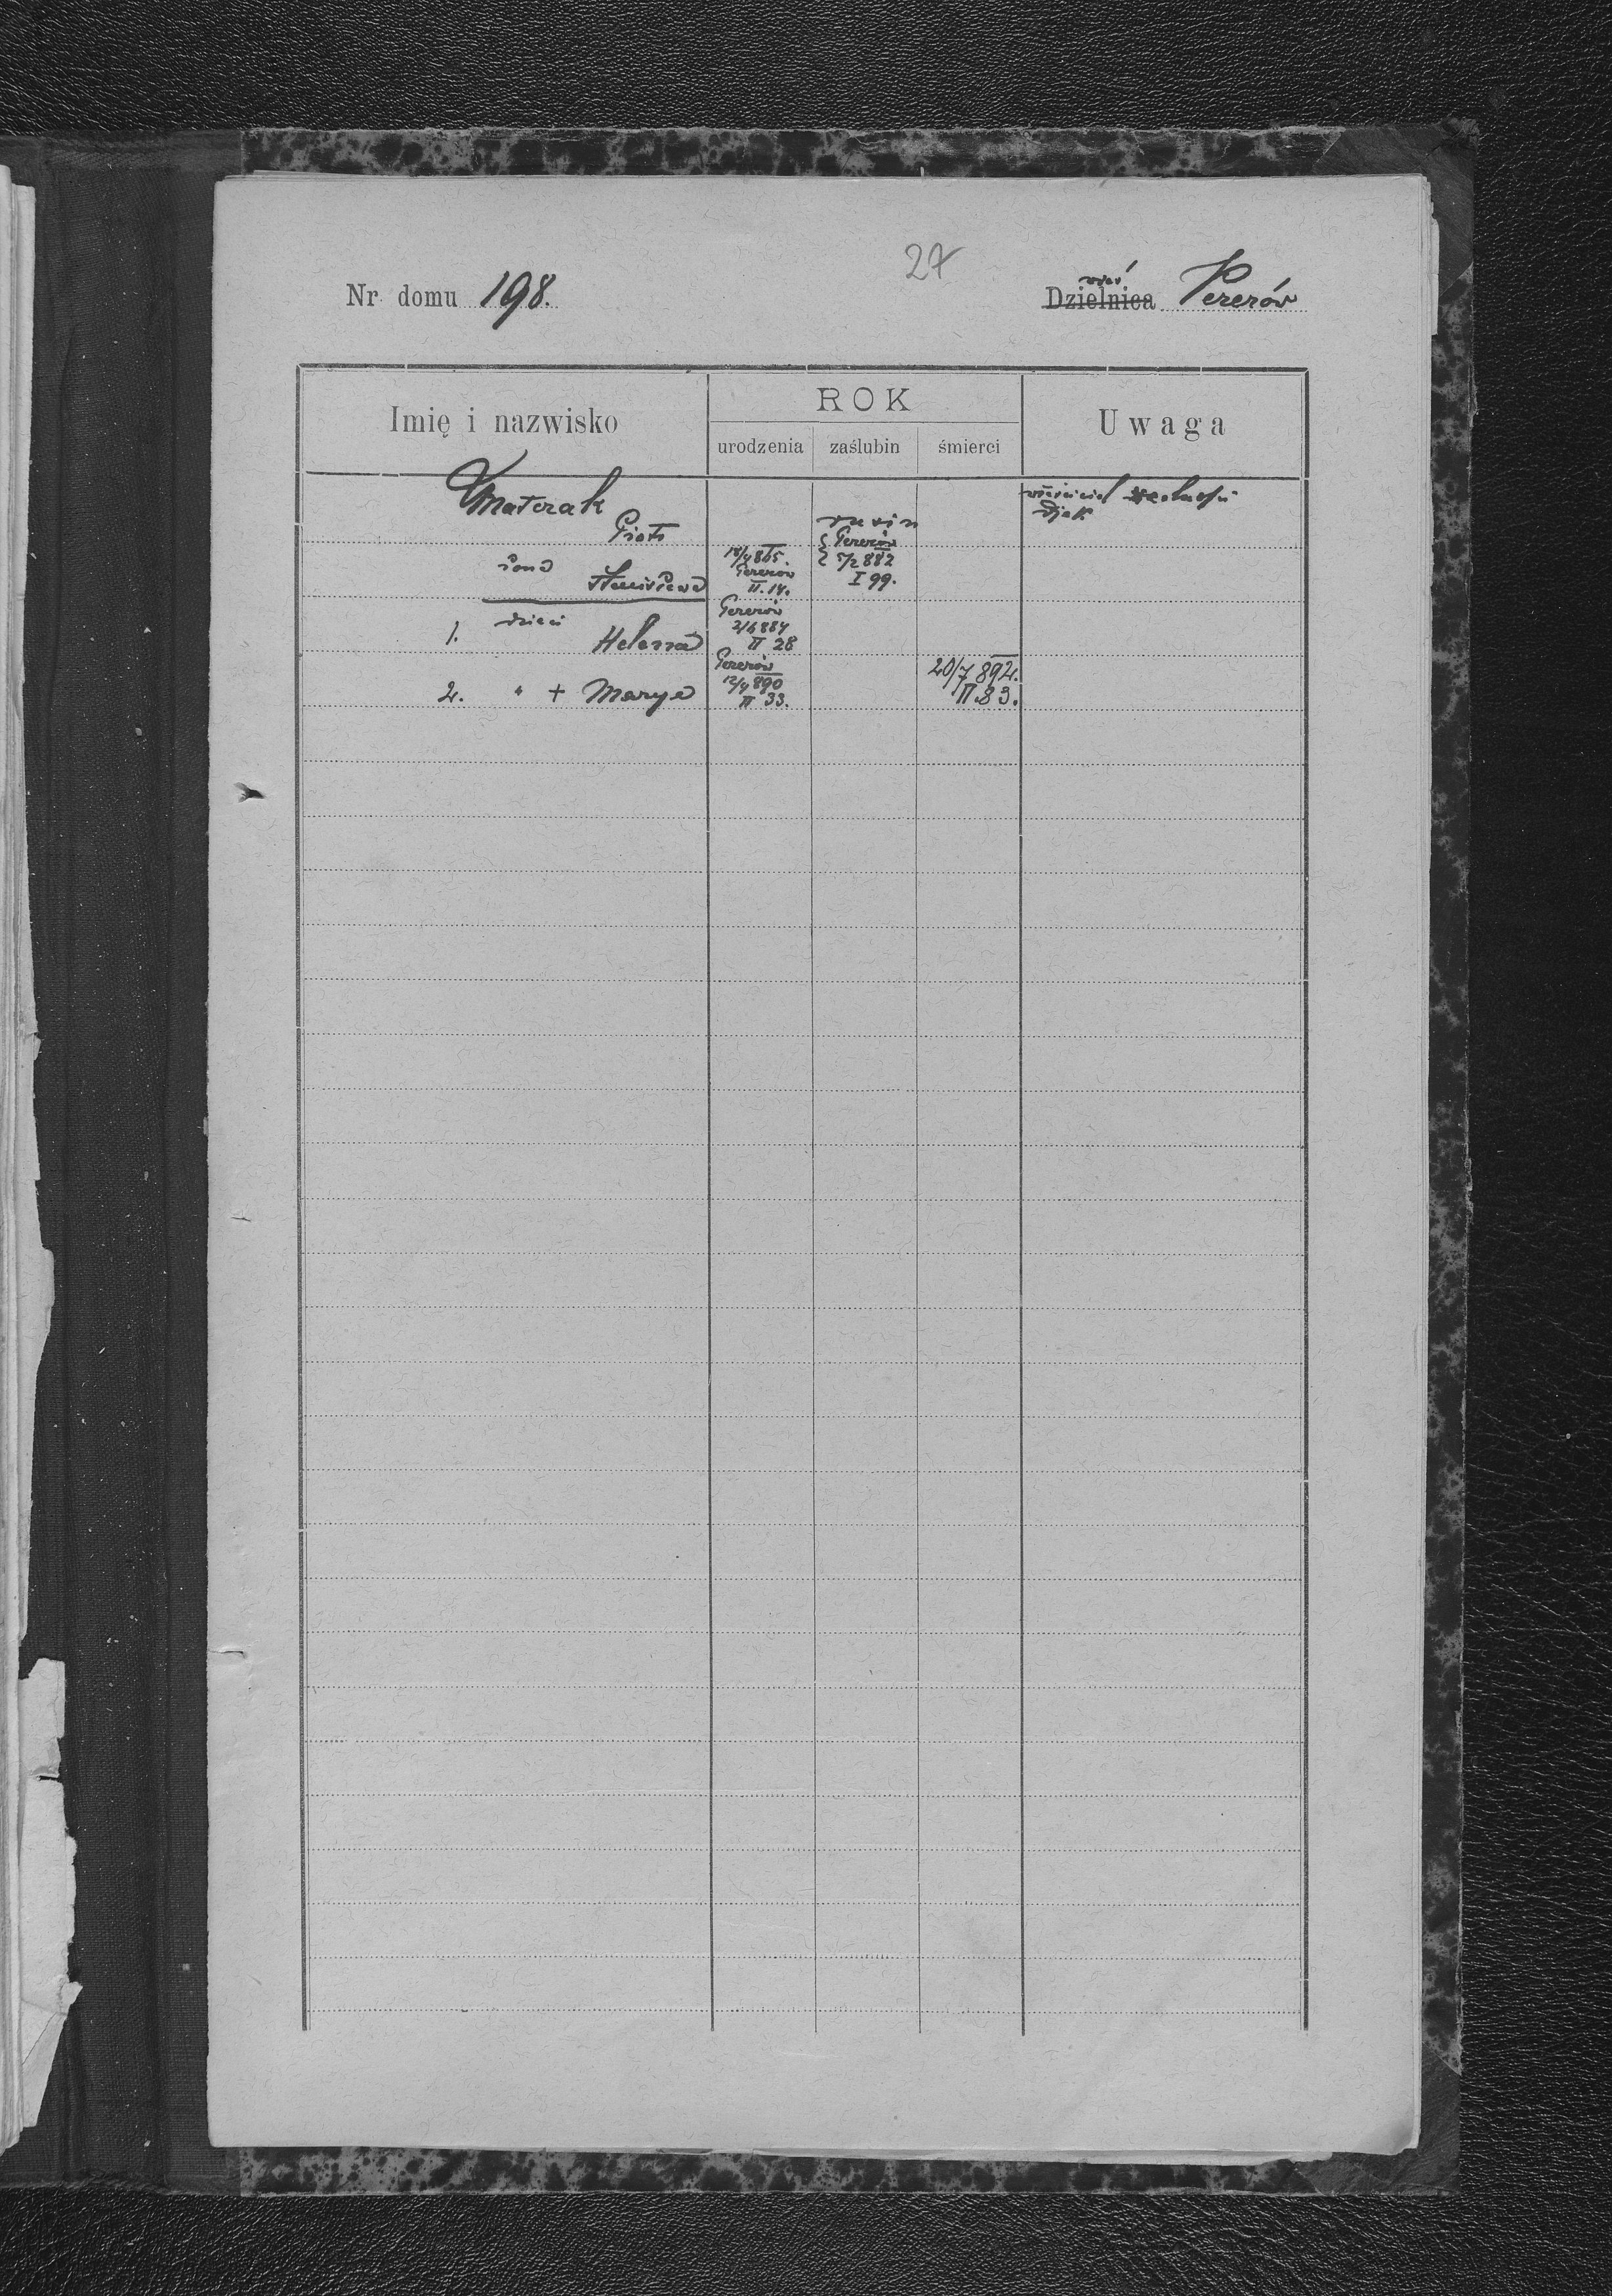 27
Nr domu 198.
wieś
Dzielnica Pererów
Imię i nazwisko
ROK
urodzenia zaślubin śmierci
Uwaga
Matczak
Piotr
żona
Stanisława
18/4 865.
Pererów
II. 14.
Pererów
5/2 882
I 99.
dzieci
1. Helena
Pererów
2/6 884
II 28
2. " + Marya
Pererów
12/4 890
II 33.
20/7 892.
II.83.
właściciel